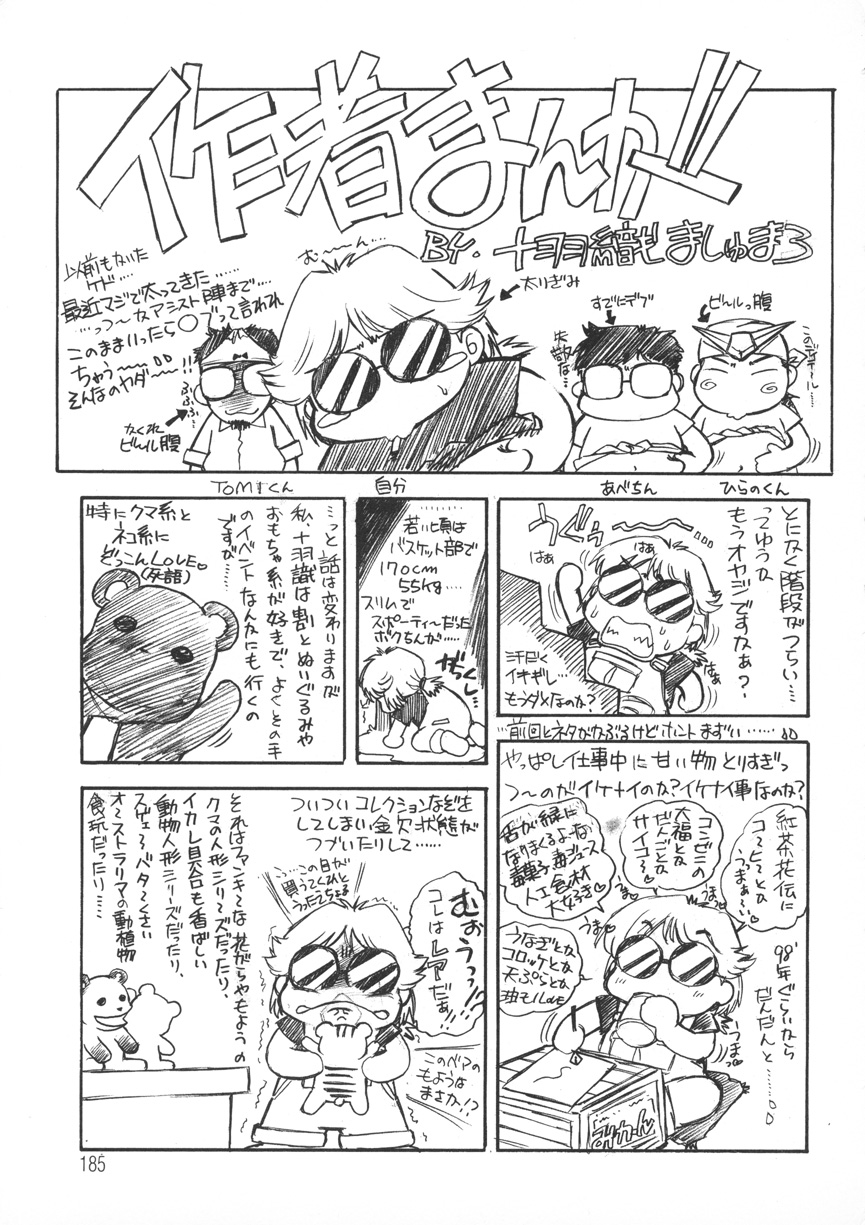 作者まんが!!
BY.十羽織ましゅまろ
む〜〜ん…
以前もかいた
ケド……
最近マジで太ってきた……
…っつ〜かアシスト陣まで…
このままいったら〇ブって言われ
ちゃう〜〜
そんなのヤダ〜〜!!
ふふふ…
かくれ
ビール腹
太りぎみ
失敬な…
すでにデブ
ビール腹
TOMすくん
自分
あべちん
ひらのくん
とにかく階段がつらい……
ってゆうか
もうオヤジですかぁ?
はぁ
はぁ
はぁ
汗だく
イキギレ…
もうダメなのか?
若い頃は
バスケット部で
170cm
55kg……
スリムで
スポーティ〜だった
ボクちんが……
がっくし…
…っと話は変わりますが
私、十羽織は割とぬいぐるみや
おもちゃ系が好きで、よくその手
のイベントなんかにも行くの
ですが……
特にクマ系と
ネコ系に
どっこんLOVE♡
(死語)
…前回とネタがかぶるけどホントまずい……
やっぱし仕事中に甘い物とりすぎっ
つ〜のがイケナイのか?イケナイ事なのか?
紅茶花伝に
コ〜ヒ〜とか
うまぁ〜い♡
コンビニの
大福とか
だんごとか
サイコ〜♡
舌が緑に
なりまくるよ〜な
毒菓子毒ジュース
人工色材
大好き♡
うなぎとか
コロッケとか
天ぷらとか
油モノLOVE
うま♡
うま♡
うまっ
98'年ぐらいから
だんだんと……
みかーん
ついついコレクションなぞを
してしまい金欠状態が
つづいたりして……
…この目が
買ってくれと
うったてちょる
むおうっっ!!
コレはレアだぁ!!
このベアの
もようは
まさか!?
それはファンキ〜な花がらやもようの
クマの人形シリ〜ズだったり、
イカレ具合も香ばしい
動物人形シリーズだったり、
スゲェ〜バタ〜くさい
オ〜ストラリアの動植物
食玩だったり……
185